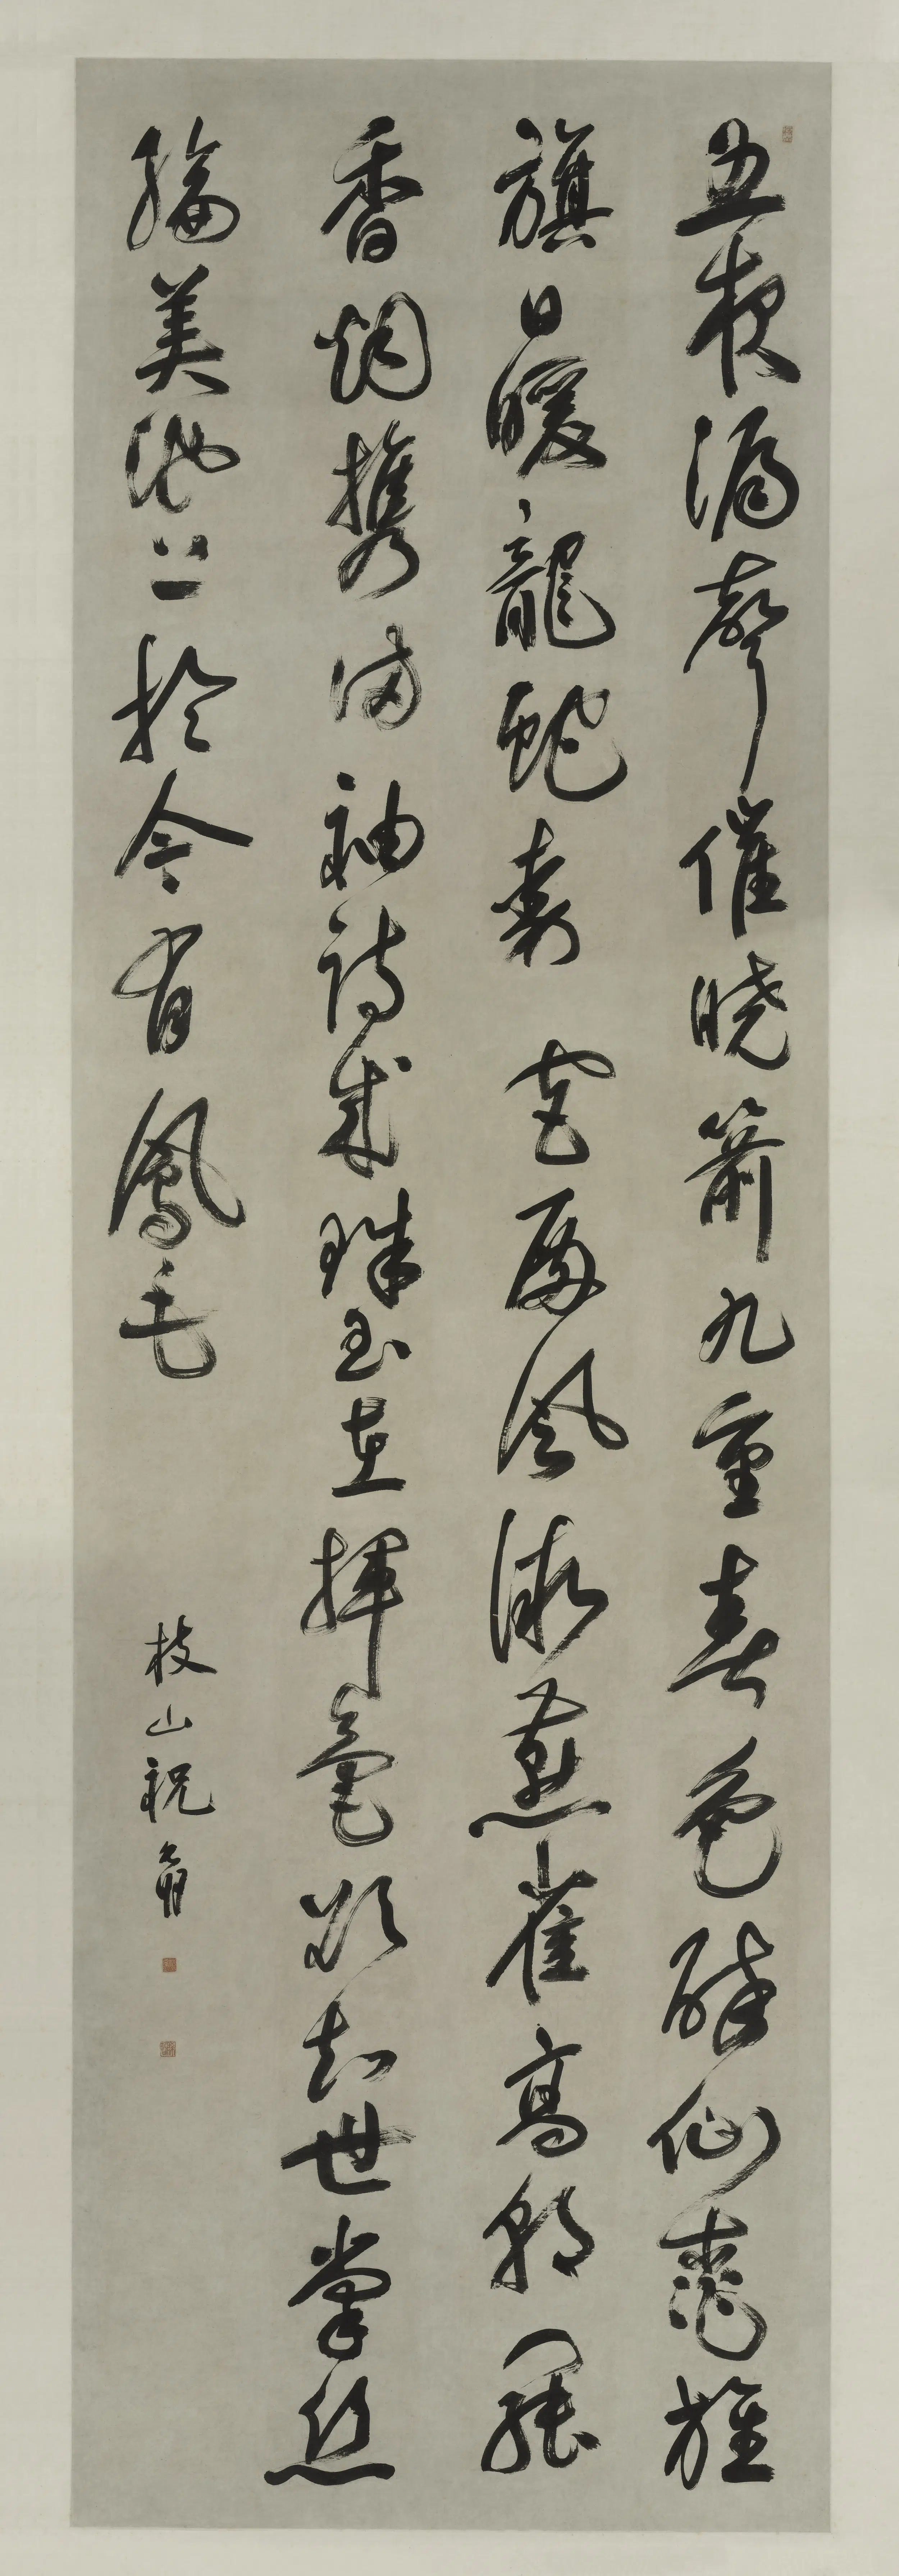 五夜漏聲催曉箭九重春色醉仙桃旌
旗日暖龍蛇動宮殿風微燕雀高朝罷
香烟携滿袖詩成珠玉在揮毫欲知世掌絲
綸美池上於今有鳳毛
枝山祝允明